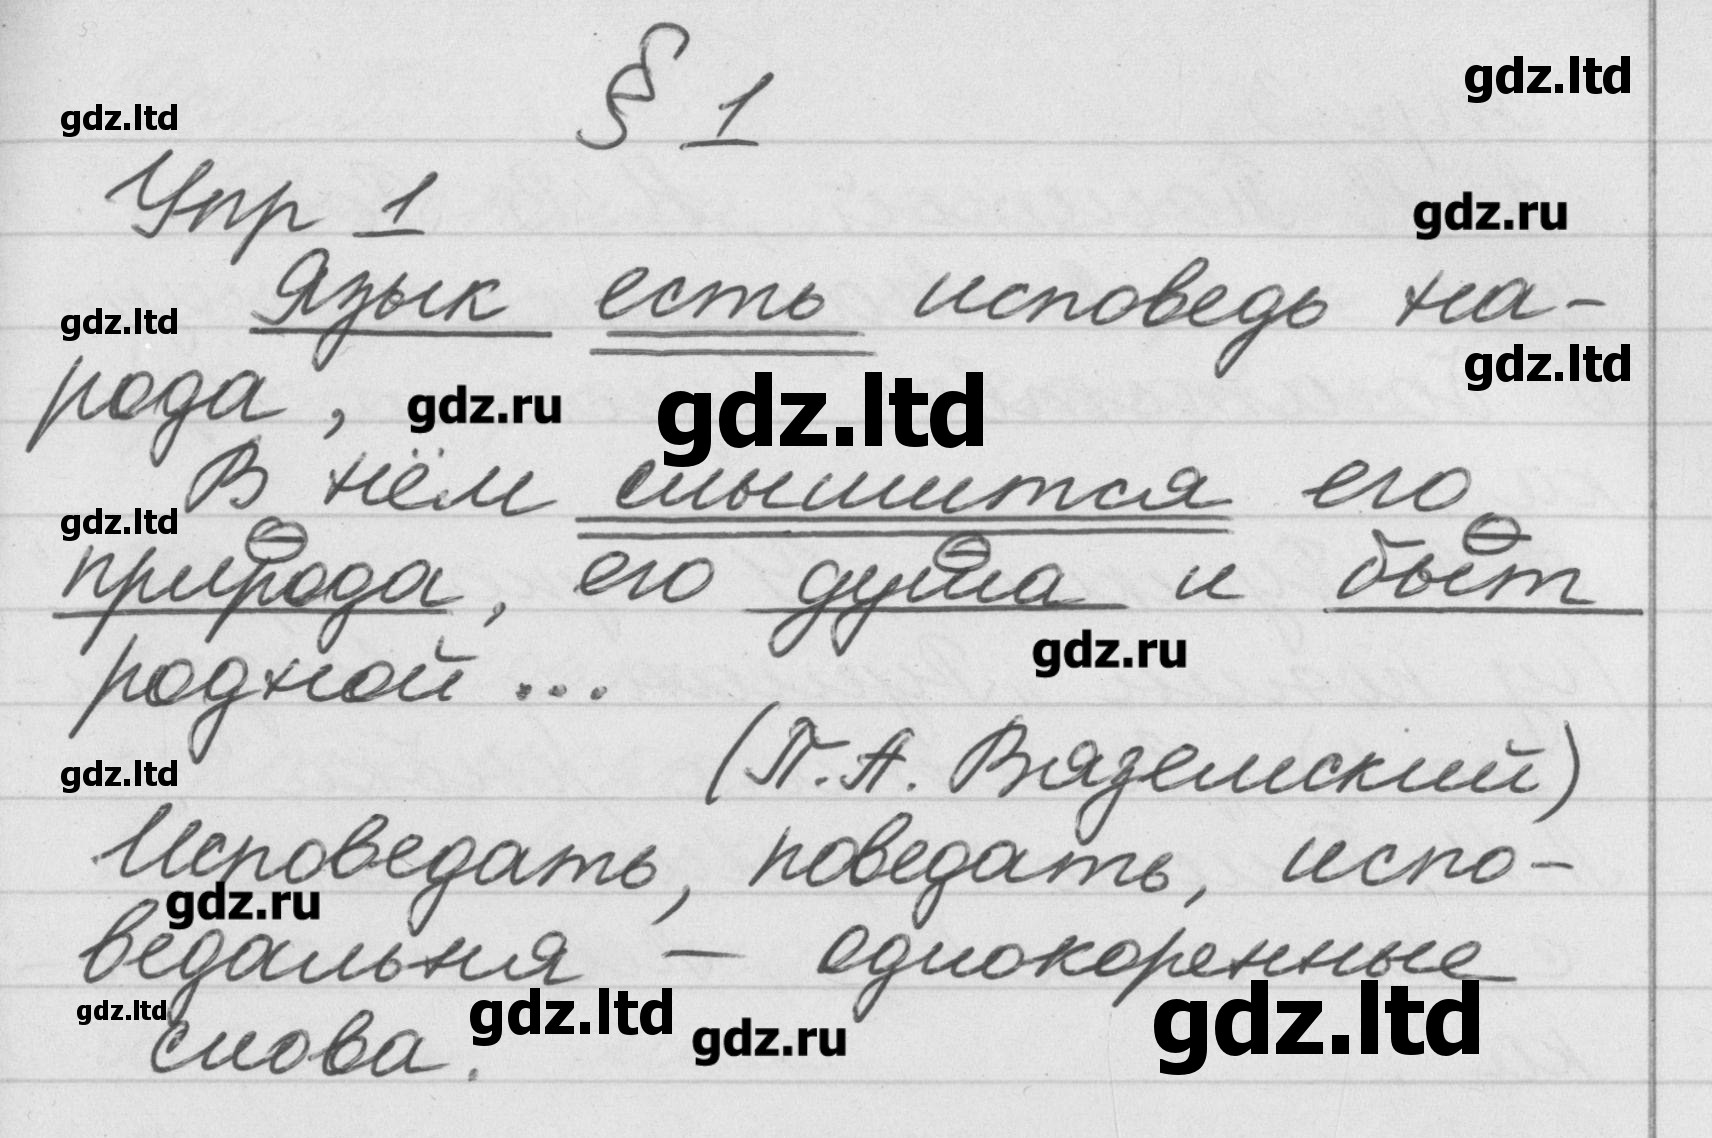 § 1
gdz.ltd
gdz.ltd
Упр 1
gdz.ru
Язык есть исповедь на-
gdz.ltd
gdz.ltd
рода,
gdz.ru
gdz.ltd
В нём слышится его
gdz.ltd
природа, его душа и быт
родной...
gdz.ru
(П. А. Вяземский)
gdz.ltd
Исповедать, поведать, испо-
gdz.ru
ведальня — однокоренные
gdz.ltd
слова.
gdz.ltd
gdz.ru
gdz.ltd